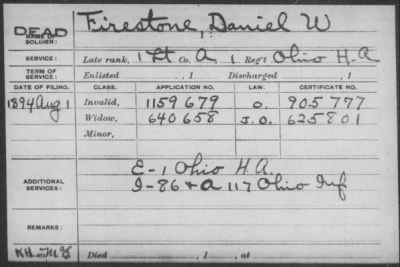 Firestone, Daniel W
DEAD
NAME OF SOLDIER:
SERVICE: Late rank, 1 Lt Co. A 1 Reg't Ohio H.A
TERM OF SERVICE: Enlisted , 1 Discharged , 1
DATE OF FILING. CLASS. APPLICATION NO. LAW. CERTIFICATE NO.
1894 Aug 1 Invalid, 1159679 O. 905777
Widow, 640658 S.O. 625801
Minor,
E-1 Ohio H.A.
ADDITIONAL SERVICES: I-86 + A 117 Ohio Inf
REMARKS:
Died , 1 , at